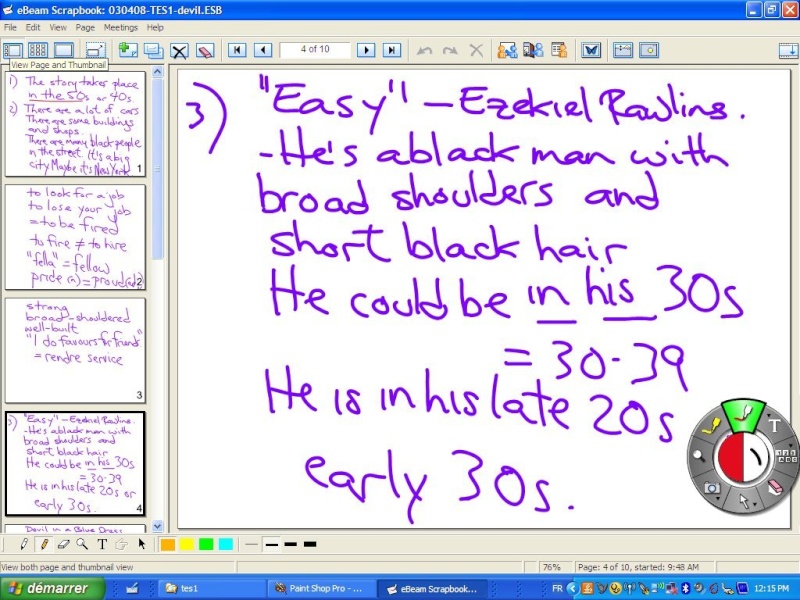 eBeam Scrapbook: 030408-TES1-devil.ESB
File Edit View Page Meetings Help
4 of 10
View Page and Thumbnail
1) The story takes place
in the 50s or 40s
2) There are a lot of cars
There are some buildings
and shops.
There are many black people
in the street. It's a big
city Maybe it's New York
1
to look for a job
to lose your job
= to be fired
to fire ≠ to hire
"fella" = fellow
pride (n) = proud (adj)
2
strong
broad-shouldered
well-built
"I do favours for friends"
= rendre service
3
3) "Easy" - Ezekiel Rawlins.
-He's a black man with
broad shoulders and
short black hair
He could be in his 30s
= 30-39
He is in his late 20s or
early 30s.
4
Devil in a Blue Dress
3) "Easy" - Ezekiel Rawlins.
-He's a black man with
broad shoulders and
short black hair
He could be in his 30s
= 30-39
He is in his late 20s
early 30s.
T
T
View both page and thumbnail view
76%
Page: 4 of 10, started: 9:48 AM
démarrer
tes1
Paint Shop Pro - ...
eBeam Scrapbook...
FR
12:15 PM